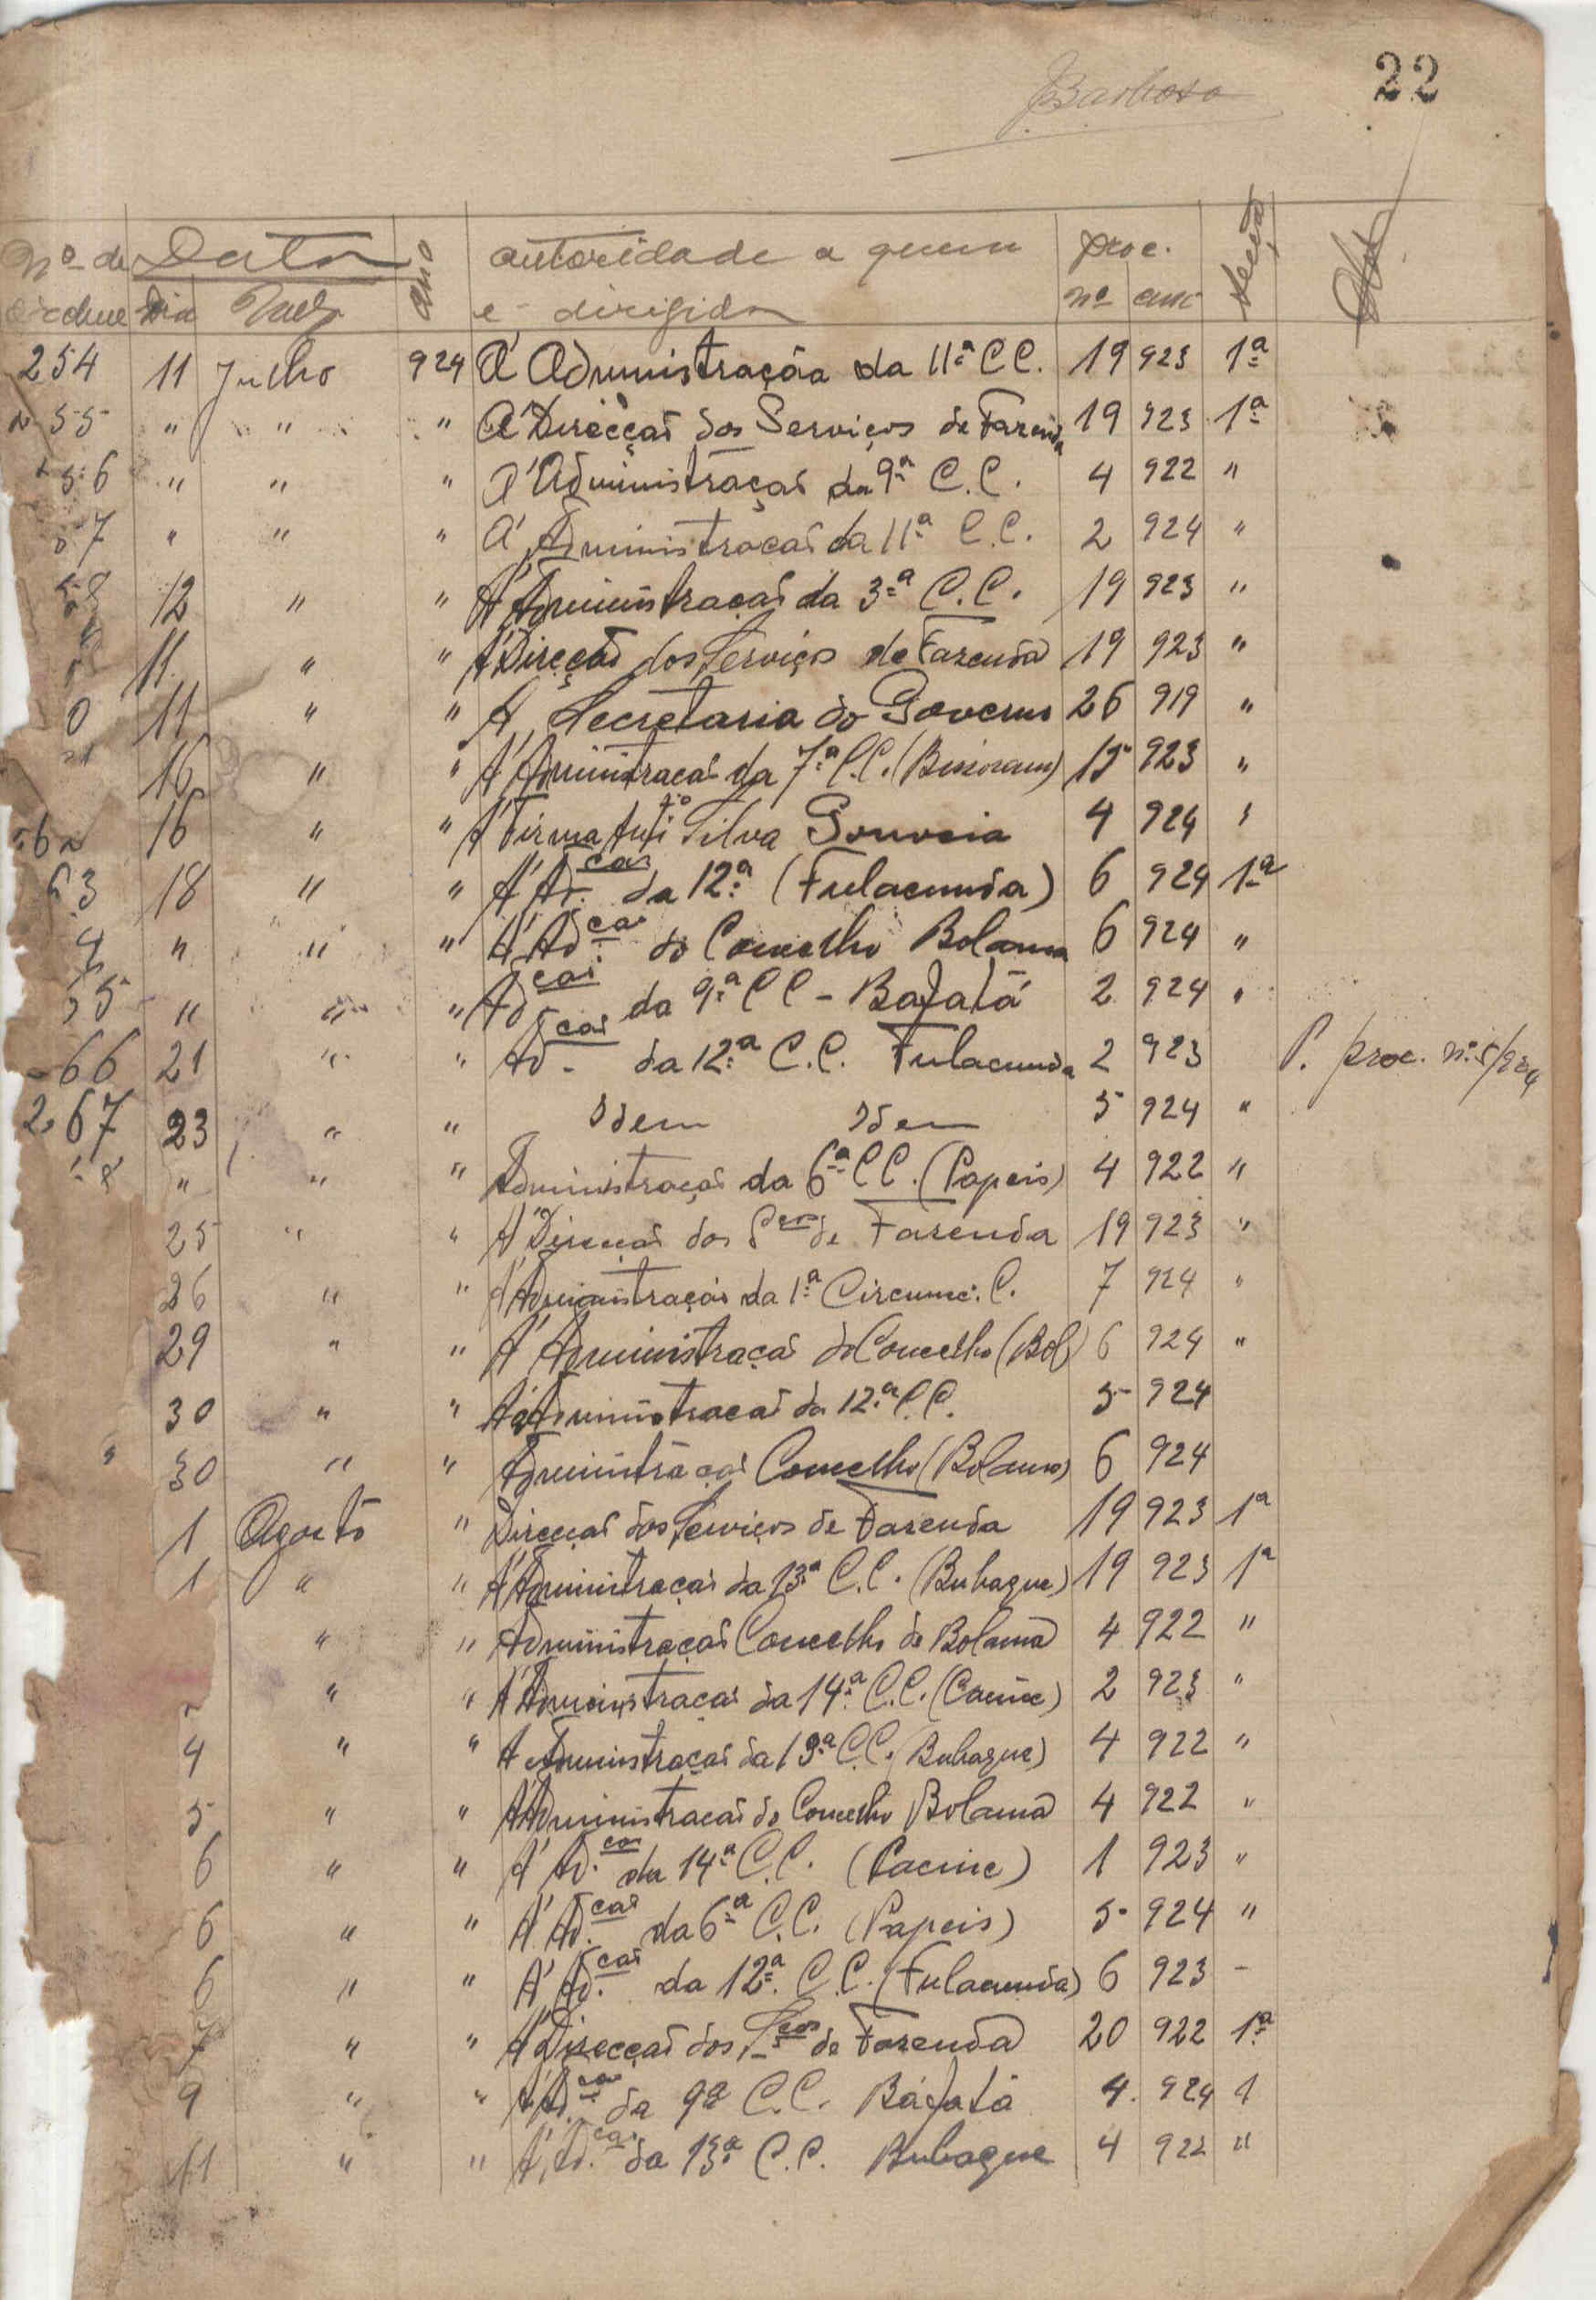 22
Barbosa
Nº de Data Ano autoridade a quem proc. Secção Obs
ordem Dia Mez é dirigida nº ano
254 11 Julho 924 Á Administração da 11ª C C. 19 923 1ª
55 " " " Á Direcçaõ dos Serviços de Fazenda 19 923 1ª
56 " " " Á Administraçaõ da 9ª C. C. 4 922 "
57 " " " Á Administracaõ da 11ª C. C. 2 924 "
58 12 " " Á Administraçaõ da 3ª C. C. 19 923 "
11 " " Á Direçaõ dos Serviços de Fazenda 19 923 "
0 11 " " Á Secretaria do Governo 26 919 "
16 " " Á Administracaõ da 7ª C.C. 15 923 "
62 16 " " Á Firma Antº Silva Gouveia 4 924 "
63 18 " " Á Ad.çaõ da 12ª (Fulacunda) 6 924 1ª
4 " " " Á Ad.çaõ do Concelho Bolama 6 924 "
65 " " " Ad.çaõ da 9ª C C - Bafatá 2 924 "
66 21 " " Ad.çaõ da 12ª C. C. Fulacunda 2 923 P. proc. nº 5/924
267 23 " " Idem Idem 5 924 "
8 " " " Administraçaõ da 6ª C C. (Papeis) 4 922 "
25 " " Á Direcçaõ dos Ser.ços de Fazenda 19 923 "
26 " " Á Administração da 1ª Circunsc. C. 7 924 "
29 " " Á Administraçaõ do Concelho (Bol) 6 924 "
30 " " Á Administracaõ da 12ª C. C. 5 924
" 30 " " Administraçaõ Concelho (Bolama) 6 924
1 Agosto " Direcçaõ dos Serviços de Fazenda 19 923 1ª
1 " " Á Administraçaõ da 13ª C. C. (Bubaque) 19 923 1ª
" " Administraçaõ Concelho de Bolama 4 922 "
" " Á Administracaõ da 14ª C. C. (Cacine) 2 923 "
4 " " A Administraçaõ da 13ª C. C. (Bubaque) 4 922 "
5 " " Á Administracaõ do Concelho Bolama 4 922 "
6 " " Á Ad.çaõ da 14ª C. C. (Cacine) 1 923 "
6 " " Á Ad.çaõ da 6ª C. C. (Papeis) 5 924 "
6 " " Á Ad.çaõ da 12ª C. C. (Fulacunda) 6 923 -
7 " " Á Direcçaõ dos S.ços de Fazenda 20 922 1ª
9 " " Á Ad.çaõ da 9ª C. C. Bafatá 4. 924 1
11 " " Á Ad.çaõ da 13ª C. C. Bubaque 4 922 "